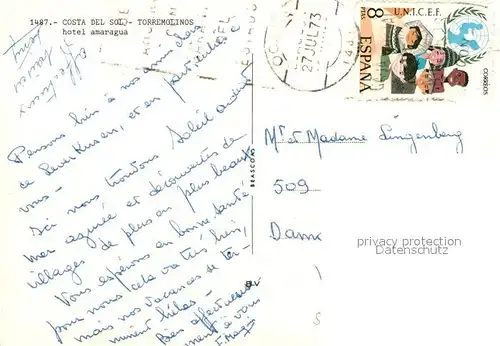 1487.- COSTA DEL SOL - TORREMOLINOS
hotel amaragua
27 JUL 73
8 PTA
U.N.I.C.E.F.
ESPAÑA
CORREOS
Pensons bien à nos amis
de Leverkusen, et en particulier à
vous -
Ici nous trouvons Soleil ardent
mer agitée et découvertes de
villages de plus en plus beaux
Vous espérons en bonne santé
pour nous cela va très bien,
mais nos vacances se ter-
minent hélas -
Bien affectueuse-
ment à vous
BEASCOA
Mr et Madame Lingenberg
509
privacy protection
privacy protection